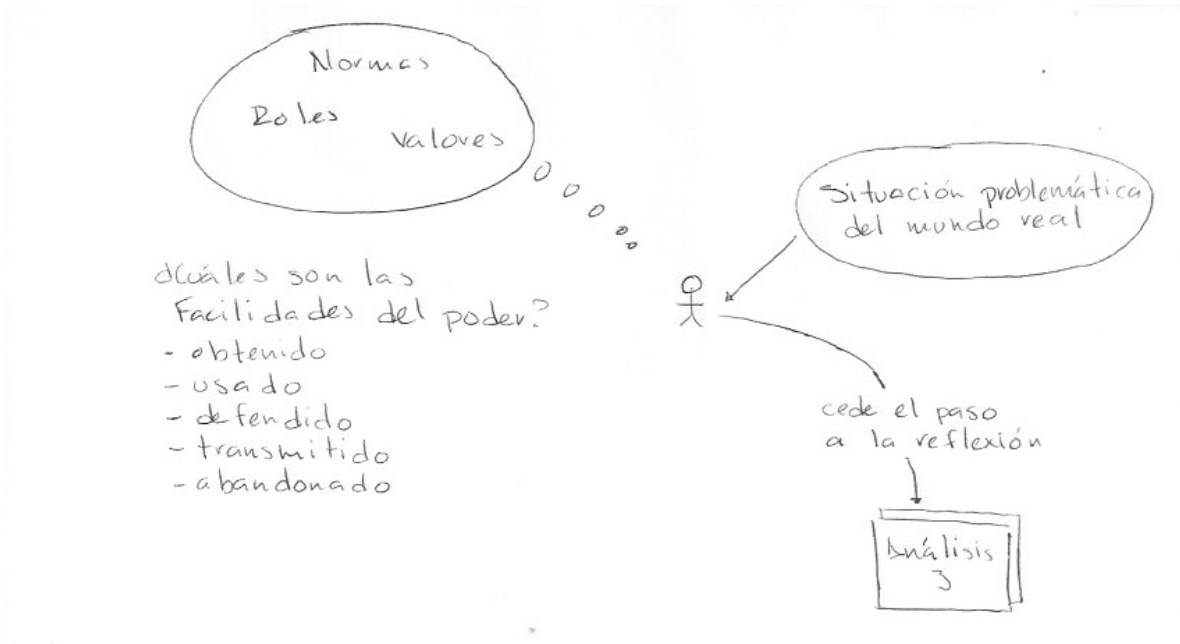 Normas
Roles
Valores
Situación problemática
del mundo real
¿Cuáles son las
Facilidades del poder?
- obtenido
- usado
- defendido
- transmitido
- abandonado
cede el paso
a la reflexión
Análisis
3